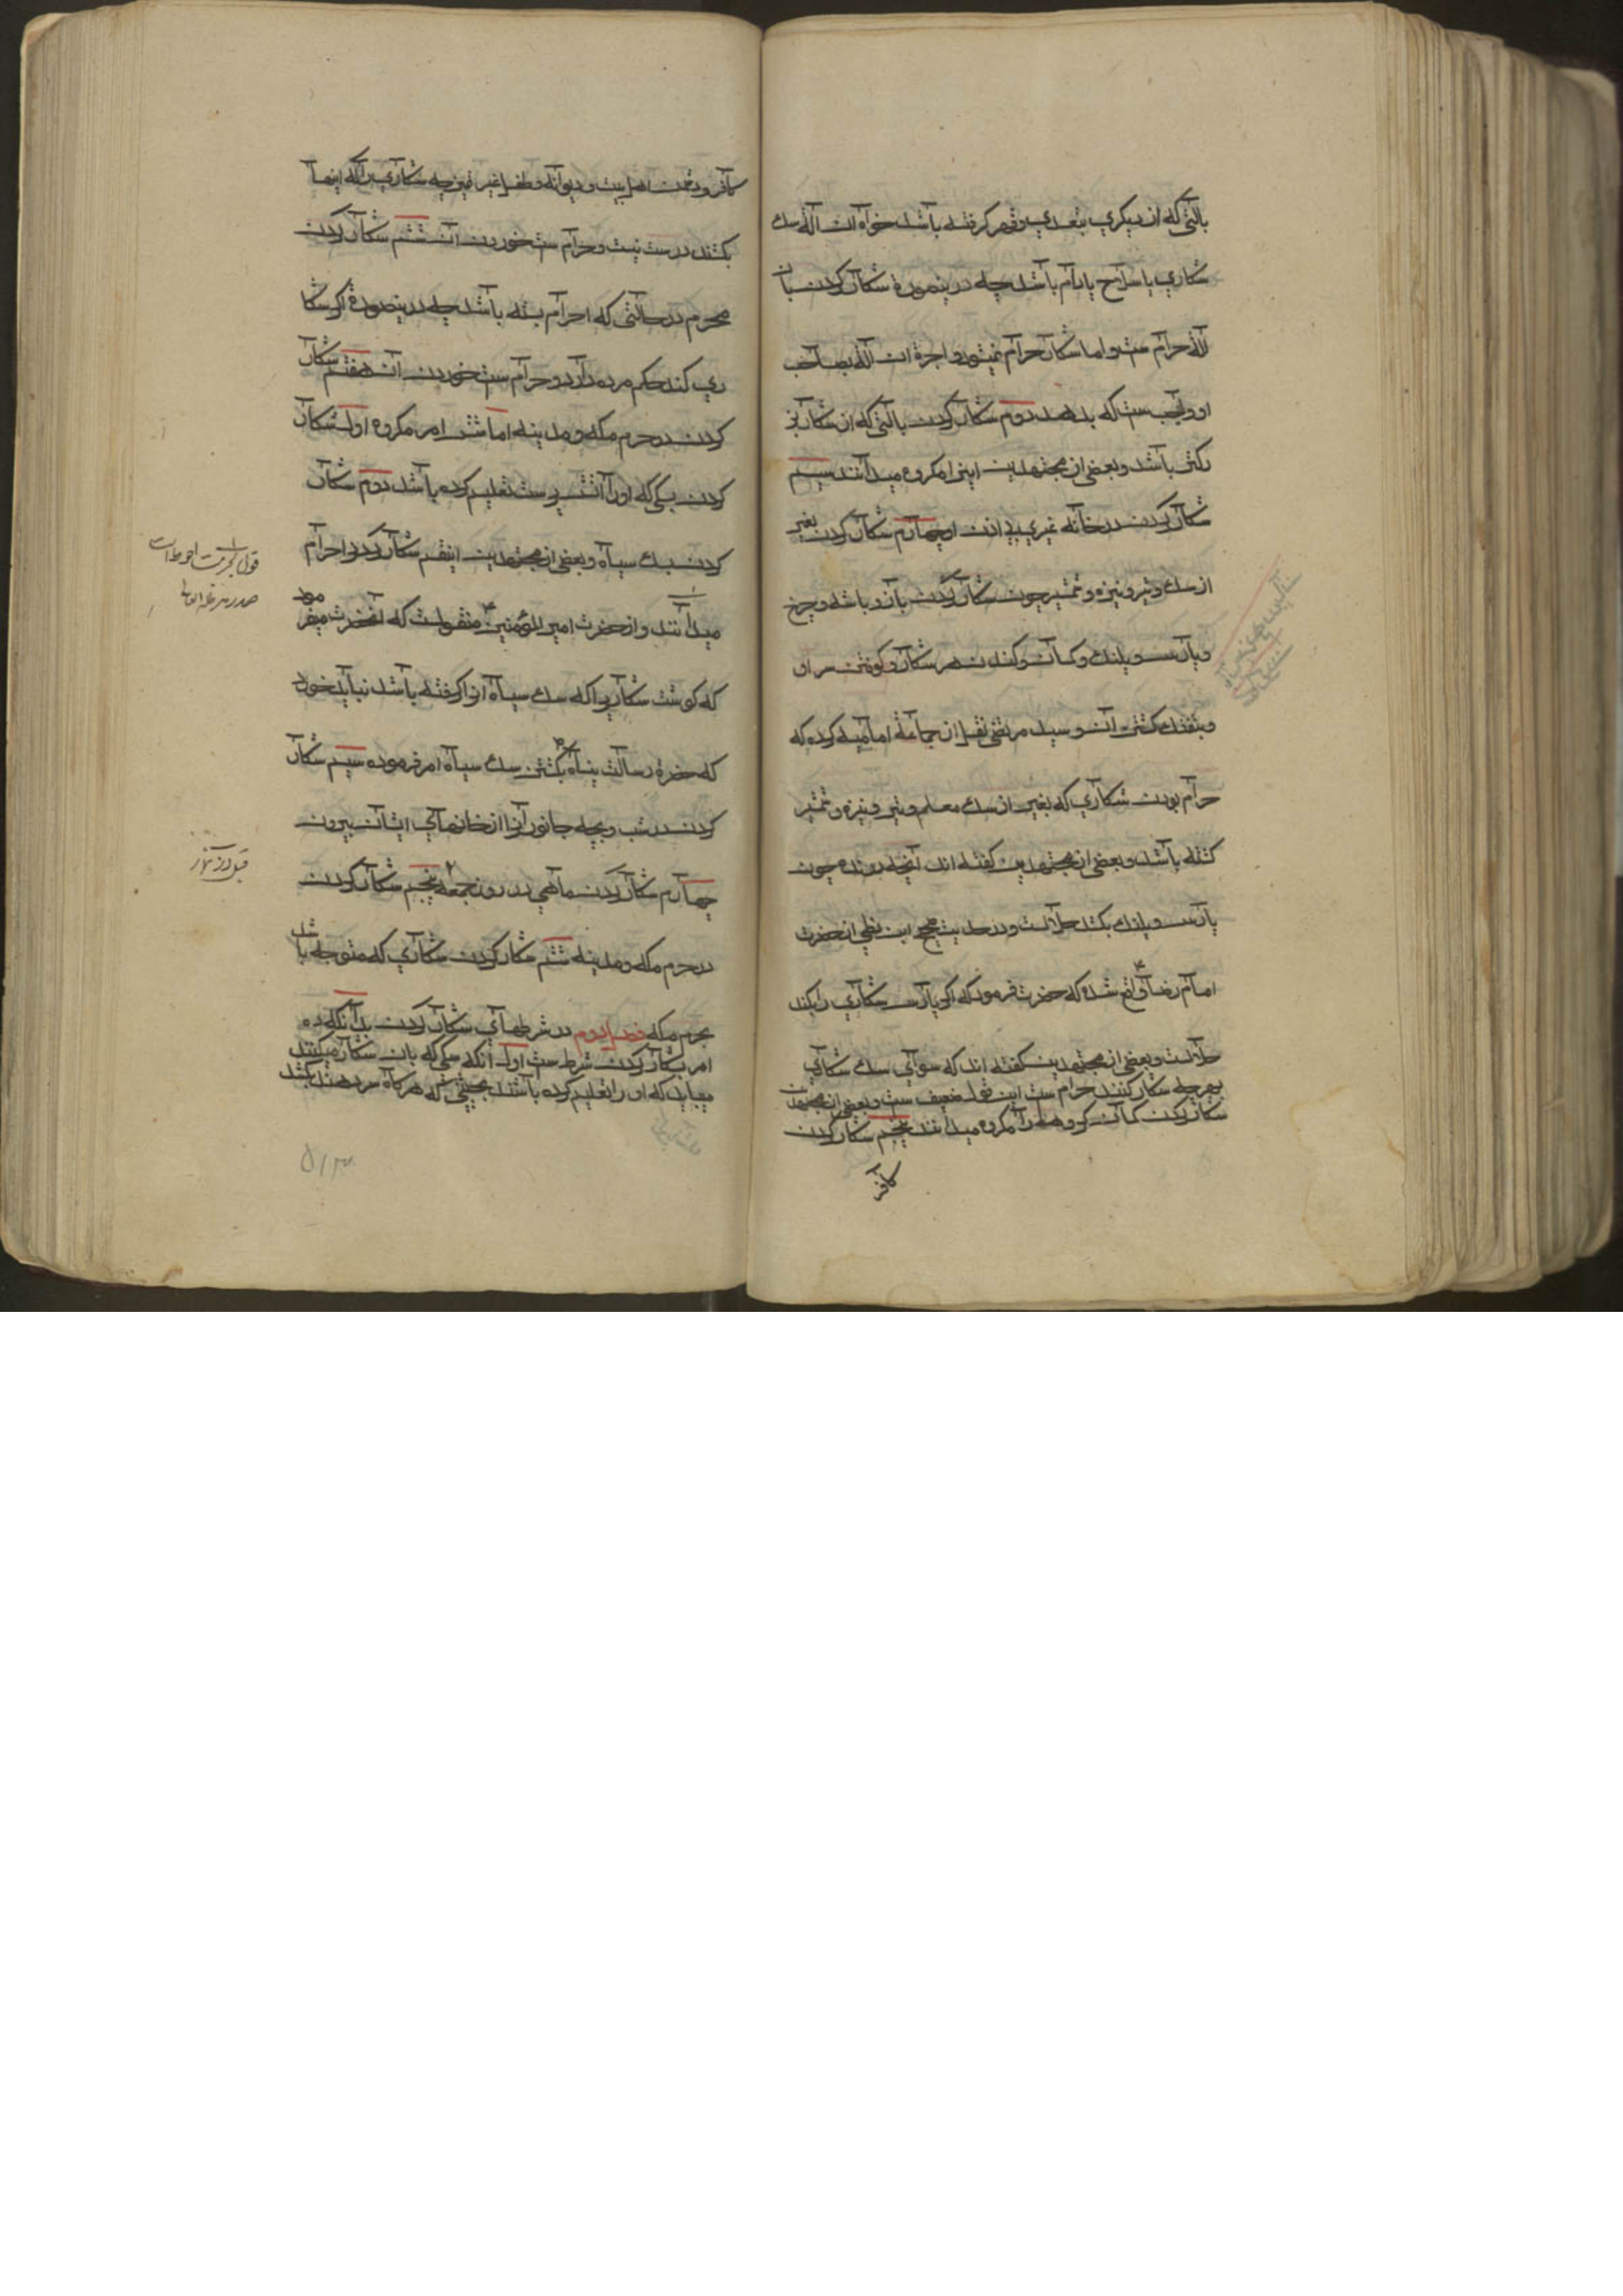 بالتی که از دیکری بتعدی و قهر کرفته باشد خواه ان الة سك
شکاری یا سلاح یا دام باشد چه درینصورة شکار کردن بان
الة حرام ست و اما شکار حرام نمیشود و اجرة ان الة بصاحب
او واجب ست که بدهد دوم شکار کردن بالتی که از شکار بز
رکتر باشد و بعضی از مجتهدین اینرا مکروه میدانند سیم
شکار کردن در خانه غیری بی اذن او چهارم شکار کردن بغیر
از سك و تیر و نیزه و شمشیر چون شکار کردن باز و باشه و چرخ
و پارس و پلنك و کمان و کندن سر شکار و کوفتن سر او
و بتفنك کشتن آن و سید مرتضی نقل از جماعة امامیه کرده که
حرام بودن شکاری که بغیر از سك معلم و تیر و نیزه و شمشیر
کشته باشد و بعضی از مجتهدین کفته اند آنچه درنده چون
پارس و پلنك بکشد حلالست و در حدیث صحیح ابن نطی از حضرت
امام رضا ع واقع شده که حضرت فرمود که اکر پارس شکاری را بکشد
حلالست و بعضی از مجتهدین کفته اند که سوای سك شکاری
بهرچه شکار کنند حرام ست این قول ضعیف ست و بعضی از مجتهدین
شکار کردن کمان کروهه را مکروه میدانند پنجم شکار کردن
کافر
کافر و دشمن اهل بیت و دیوانه و طفل غیر ممیز چه شکاری را که اینها
بکشند درست نیست و حرام ست خوردن آن ششم شکار کردن
محرم در حالتی که احرام بسته باشد چه درینصورة اکر شکا
ری کند حکم مرده دارد و حرام ست خوردن آن هفتم شکار
کردن در حرم مکه و مدینه اما شش امر مکروه اول شکار
کردن بسکی که او را آتش پرست تعلیم کرده باشد دوم شکار
کردن بسك سیاه و بعضی از مجتهدین اینقسم شکار کردن را حرام
میدانند و از حضرت امیر المؤمنین ع منقولست که آنحضرت میفرمود
که کوشت شکاریرا که سك سیاه انرا کرفته باشد نباید خورد
که حضرة رسالت پناه ص بکشتن سك سیاه امر فرموده سیم شکار
کردن در شب و بچه جانوران را از خانهای ایشان بیرون
چهارم شکار کردن ماهی در روز جمعه پنجم شکار کردن
در حرم مکه و مدینه ششم شکار کردن شکاری که متوجه باشد
بحرم مکه فصل دوم در شرطهای شکار کردن بدانکه ده
امر بشکار کردن شرط ست اول آنکه سکی که بان شکار میکنند
میباید که او را تعلیم کرده باشند بحیثیتی که هر کاه سر دهند بکشد
قول بحرمت احوط است
صدر مد ظله العالی
قبل از نماز